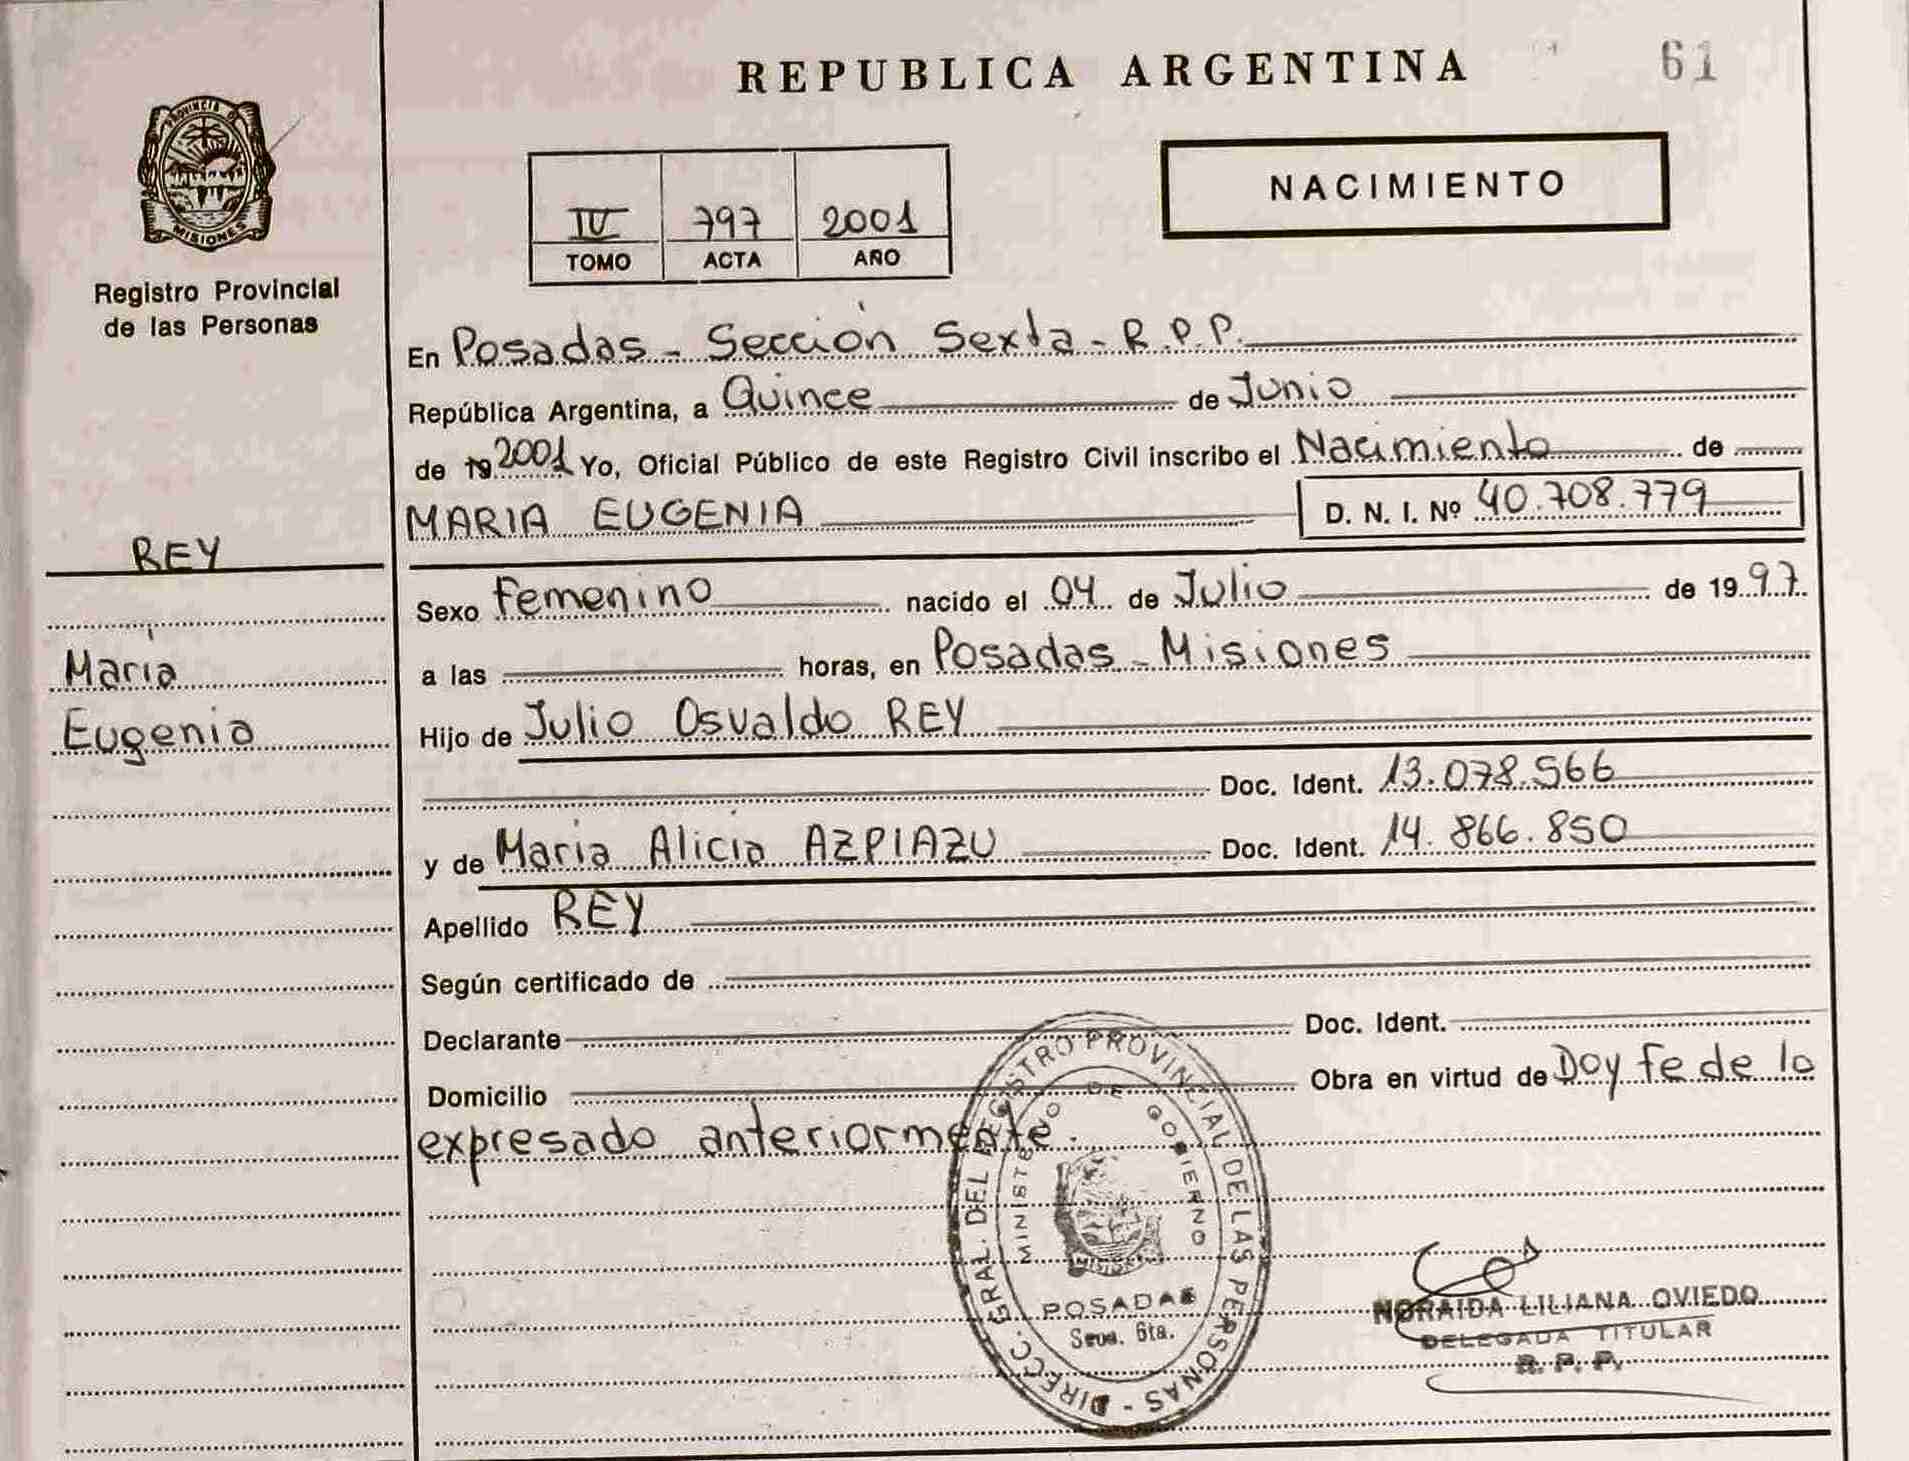 REPUBLICA ARGENTINA
61
PROVINCIA DE
MISIONES
Registro Provincial
de las Personas
IV 797 2001
TOMO ACTA AÑO
NACIMIENTO
En Posadas - Sección Sexta - R.P.P.
República Argentina, a Quince de Junio
de 19 2001 Yo, Oficial Público de este Registro Civil inscribo el Nacimiento de
MARIA EUGENIA D. N. I. Nº 40.708.779
REY
Maria
Eugenia
Sexo Femenino nacido el 04 de Julio de 1997
a las horas, en Posadas - Misiones
Hijo de Julio Osvaldo REY
Doc. Ident. 13.078.566
y de Maria Alicia AZPIAZU Doc. Ident. 14.866.850
Apellido REY
Según certificado de
Declarante Doc. Ident.
Domicilio Obra en virtud de Doy fe de lo
expresado anteriormente.
DIRECC. GRAL. DEL REGISTRO PROVINCIAL DE LAS PERSONAS -
MINISTERIO DE GOBIERNO
MISIONES
POSADAS
Secc. 6ta.
NORAIDA LILIANA OVIEDO
DELEGADA TITULAR
R. P. P.